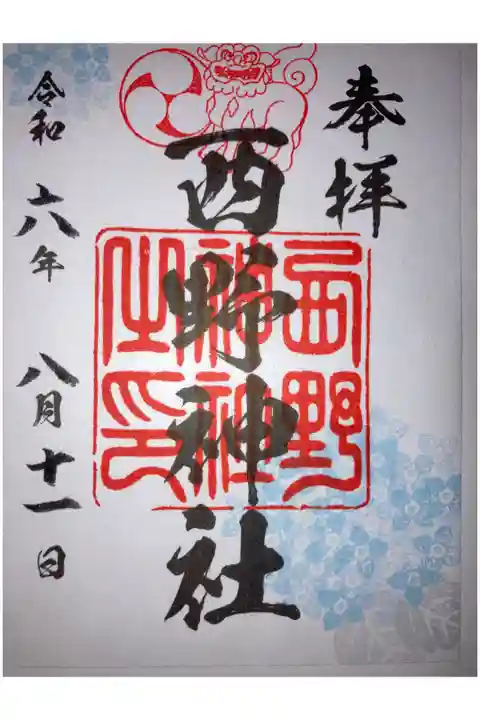 奉拝
西野神社
令和六年 八月十一日
西野
神社
之印